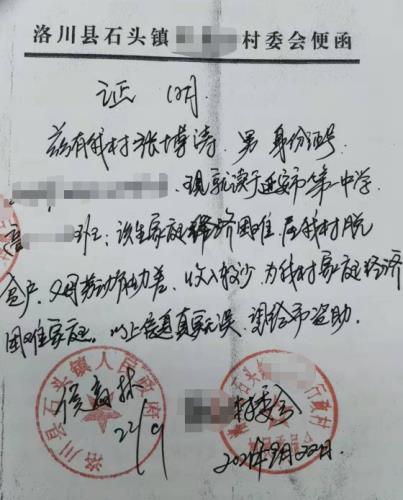 洛川县石头镇 村委会便函
证 明
兹有我村张博涛 男 身份证号
现就读于延安市第一中学
高 班：该生家庭经济困难，属我村脱
贫户，父母劳动能力差，收入较少，为我村家庭经济
困难家庭。以上信息真实无误，望给予资助。
洛川县石头镇人民政府
侯 林
22/9
村委会
2021年9月22日